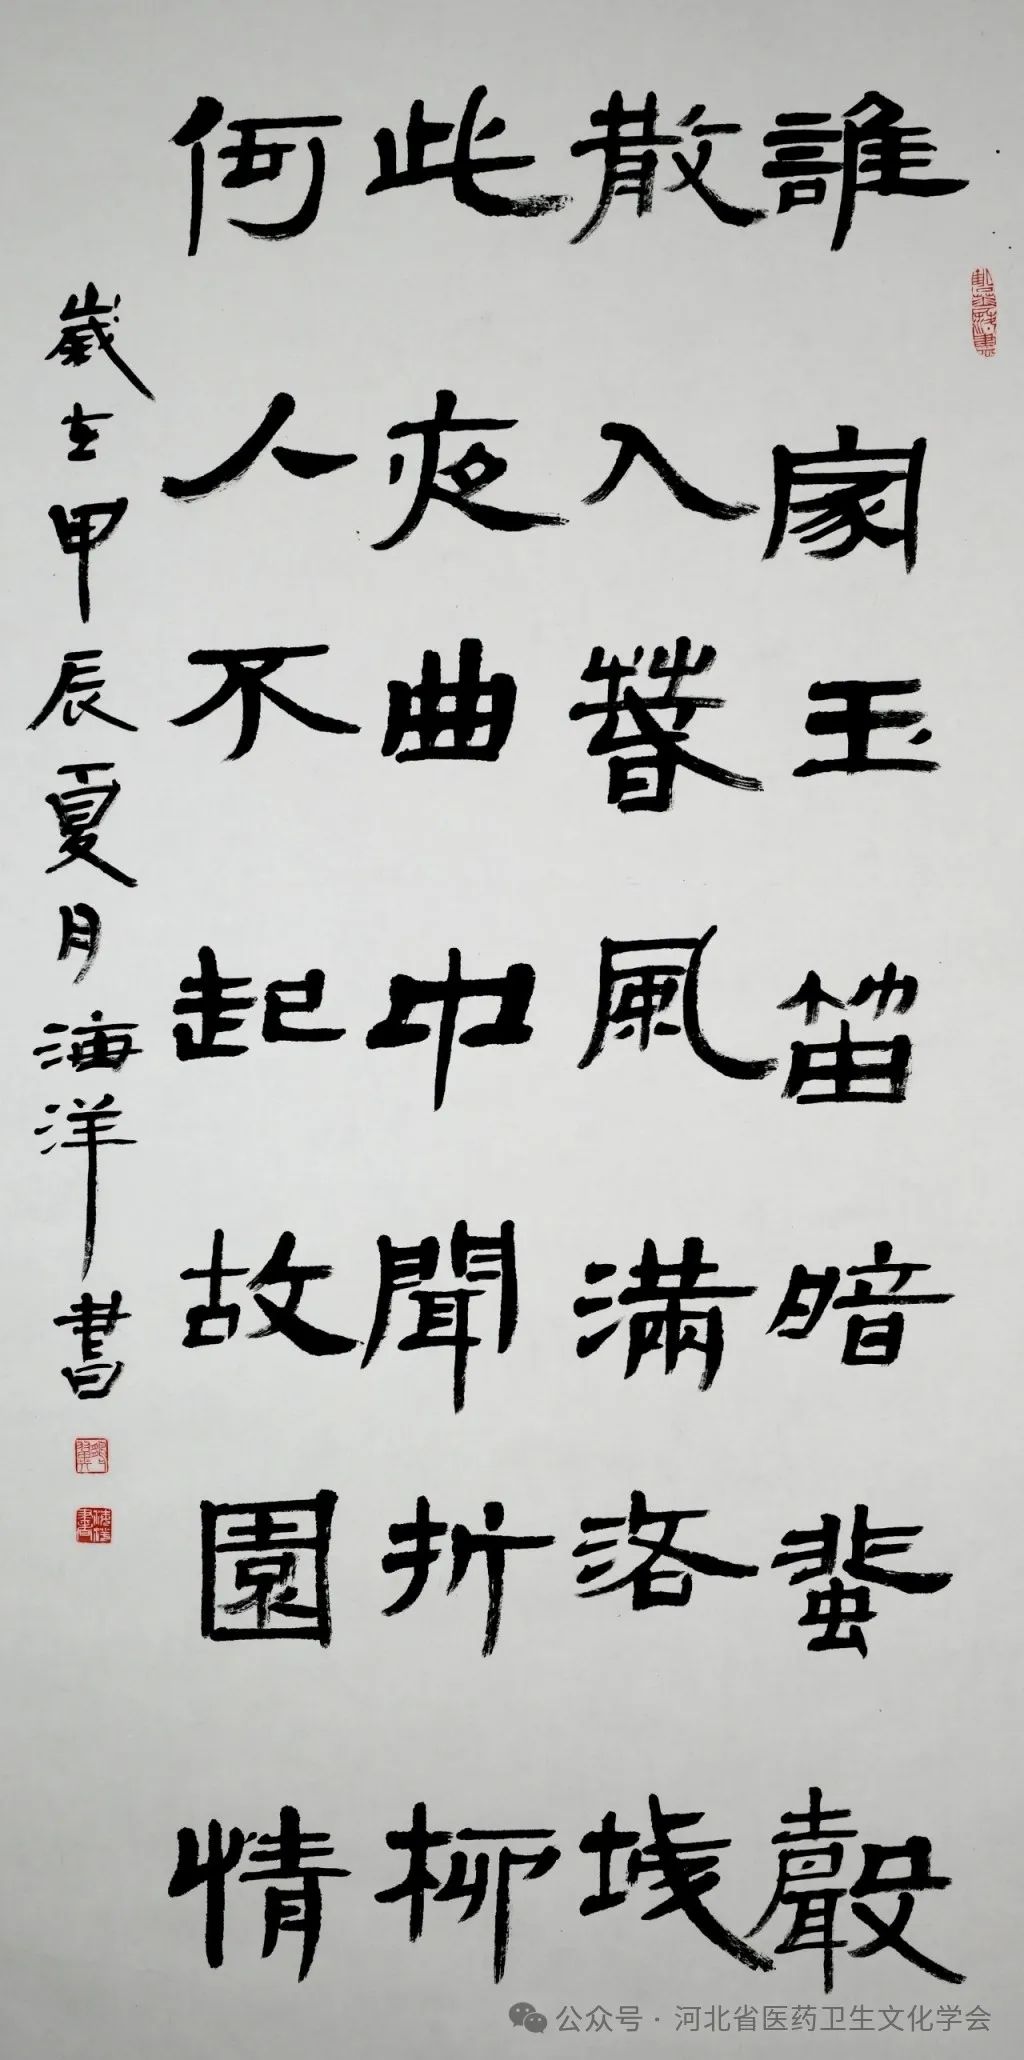 誰家玉笛暗蜚聲
散入春風滿洛城
此夜曲中聞折柳
何人不起故園情
歲在甲辰夏月海洋書
公众号·河北省医药卫生文化学会